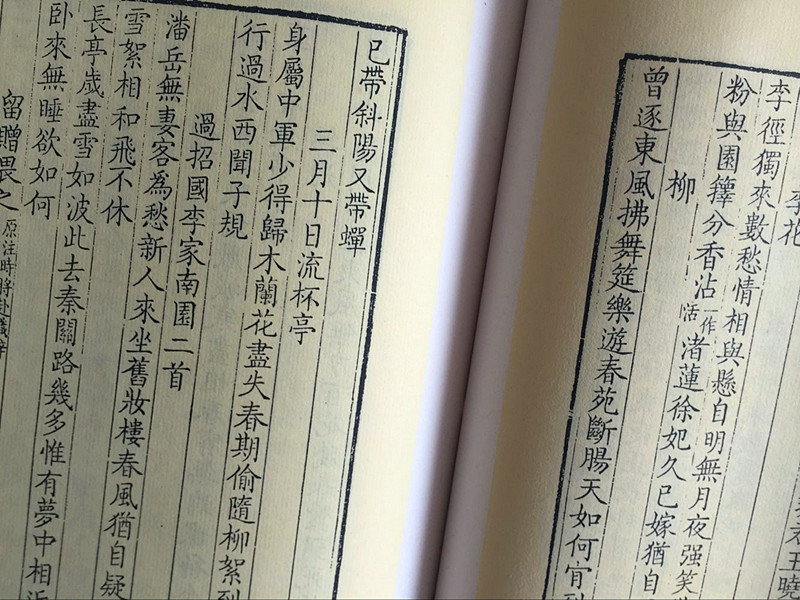 李花
李徑獨來數愁情相與懸自明無月夜强笑
粉與園籜分香沾一作活渚蓮徐妃久已嫁猶自
柳
曾逐東風拂舞筵樂遊春苑斷腸天如何肯到
已帶斜陽又帶蟬
三月十日流杯亭
身屬中軍少得歸木蘭花盡失春期偷隨柳絮到
行過水西聞子規
過招國李家南園二首
潘岳無妻客爲愁新人來坐舊妝樓春風猶自疑
雪絮相和飛不休
長亭歲盡雪如波此去秦關路幾多惟有夢中相近
卧來無睡欲如何
留贈畏之原注時將赴職梓